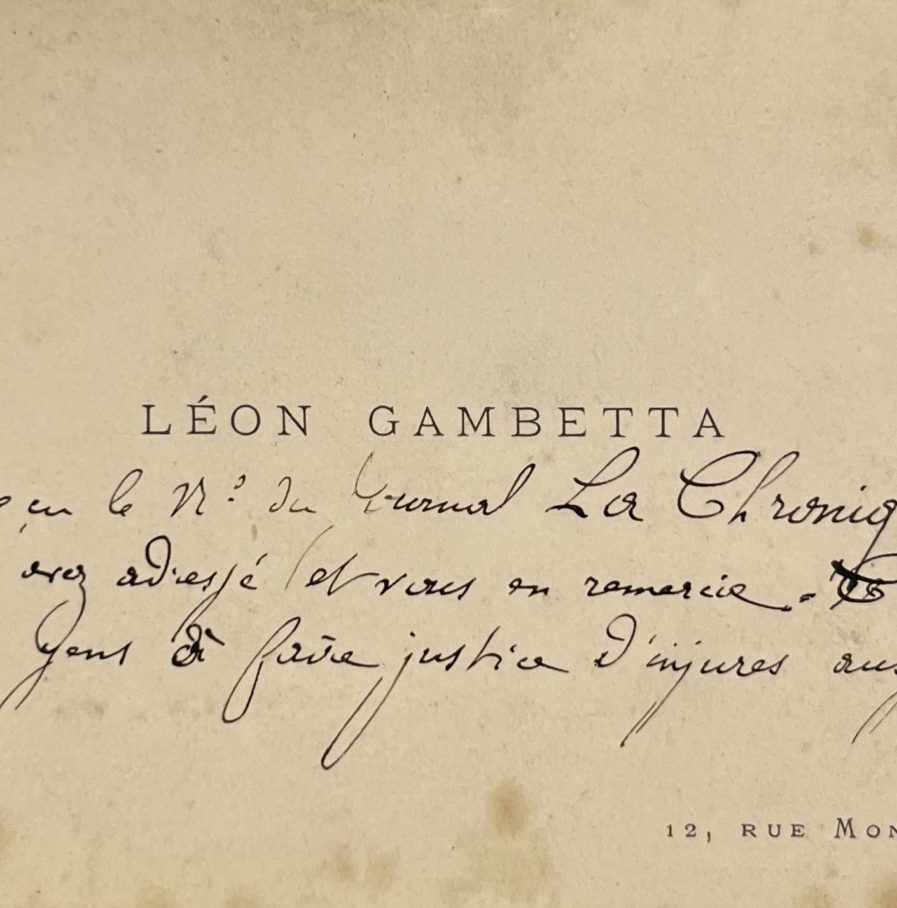 LÉON GAMBETTA
eçu le N.º du Journal La Chroniq
avez adressé et vous en remercie. -
gens à faire justice d'injures aus
12, RUE MON